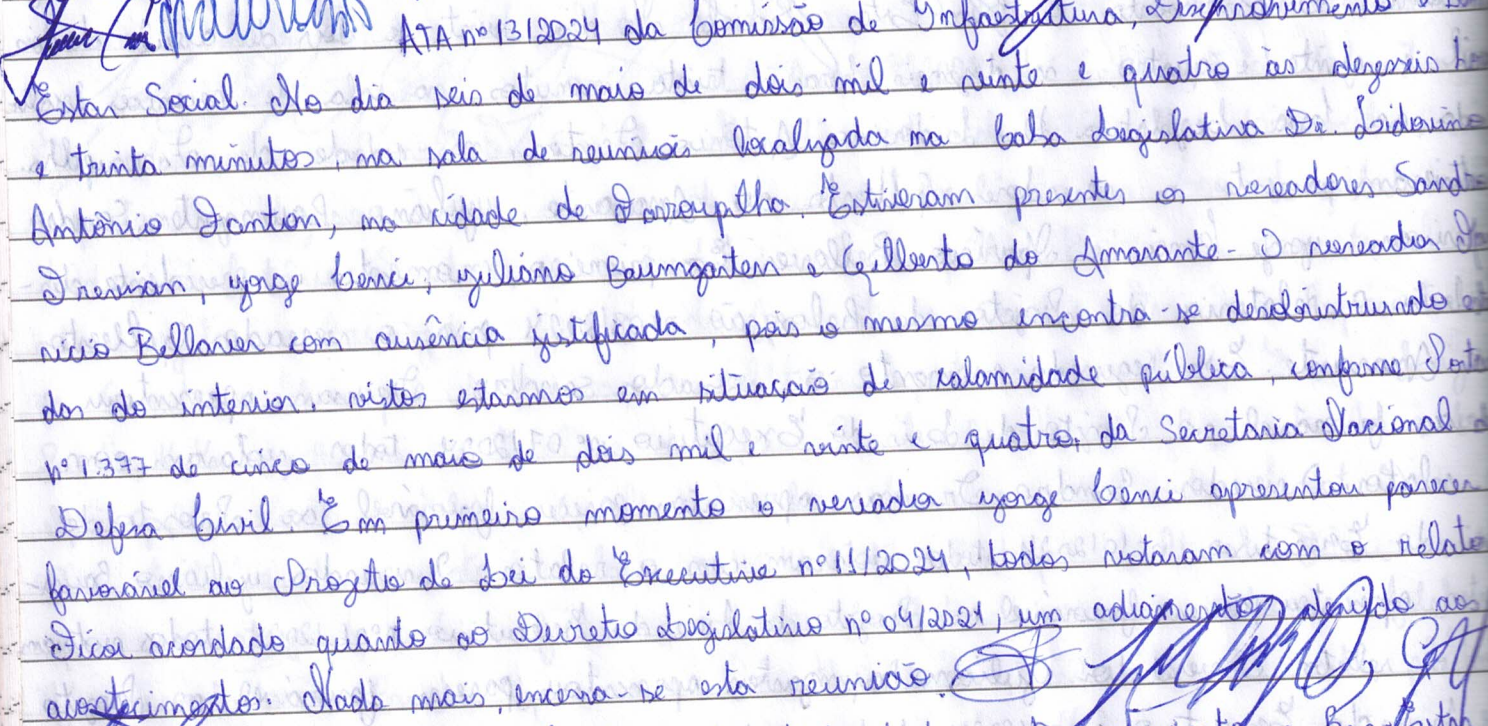 ATA nº 13/2024 da Comissão de Infraestrutura, Desenvolvimento e
Estar Social. No dia seis de maio de dois mil e vinte e quatro às dezesseis
e trinta minutos, na sala de reuniões localizada na Casa Legislativa Dr. Lidovino
Antônio Fanton, na cidade de Farroupilha. Estiveram presentes os vereadores Sand
Trevisan, Jorge Cenci, Juliano Baumgarten e Gilberto do Amarante. O vereador
ricio Bellaver com ausência justificada, pois o mesmo encontra-se desobstruindo
das do interior, vistos estarmos em situação de calamidade pública, conforme Porta
nº 1.377 de cinco de maio de dois mil e vinte e quatro, da Secretaria Nacional
Defesa Civil. Em primeiro momento o vereador Jorge Cenci apresentou parecer
favorável ao Projeto de Lei do Executivo nº 11/2024, todos votaram com o relato
Ficou acordado quanto ao Decreto Legislativo nº 04/2021, um adiamento devido ao
acontecimentos. Nada mais, encerra-se esta reunião.